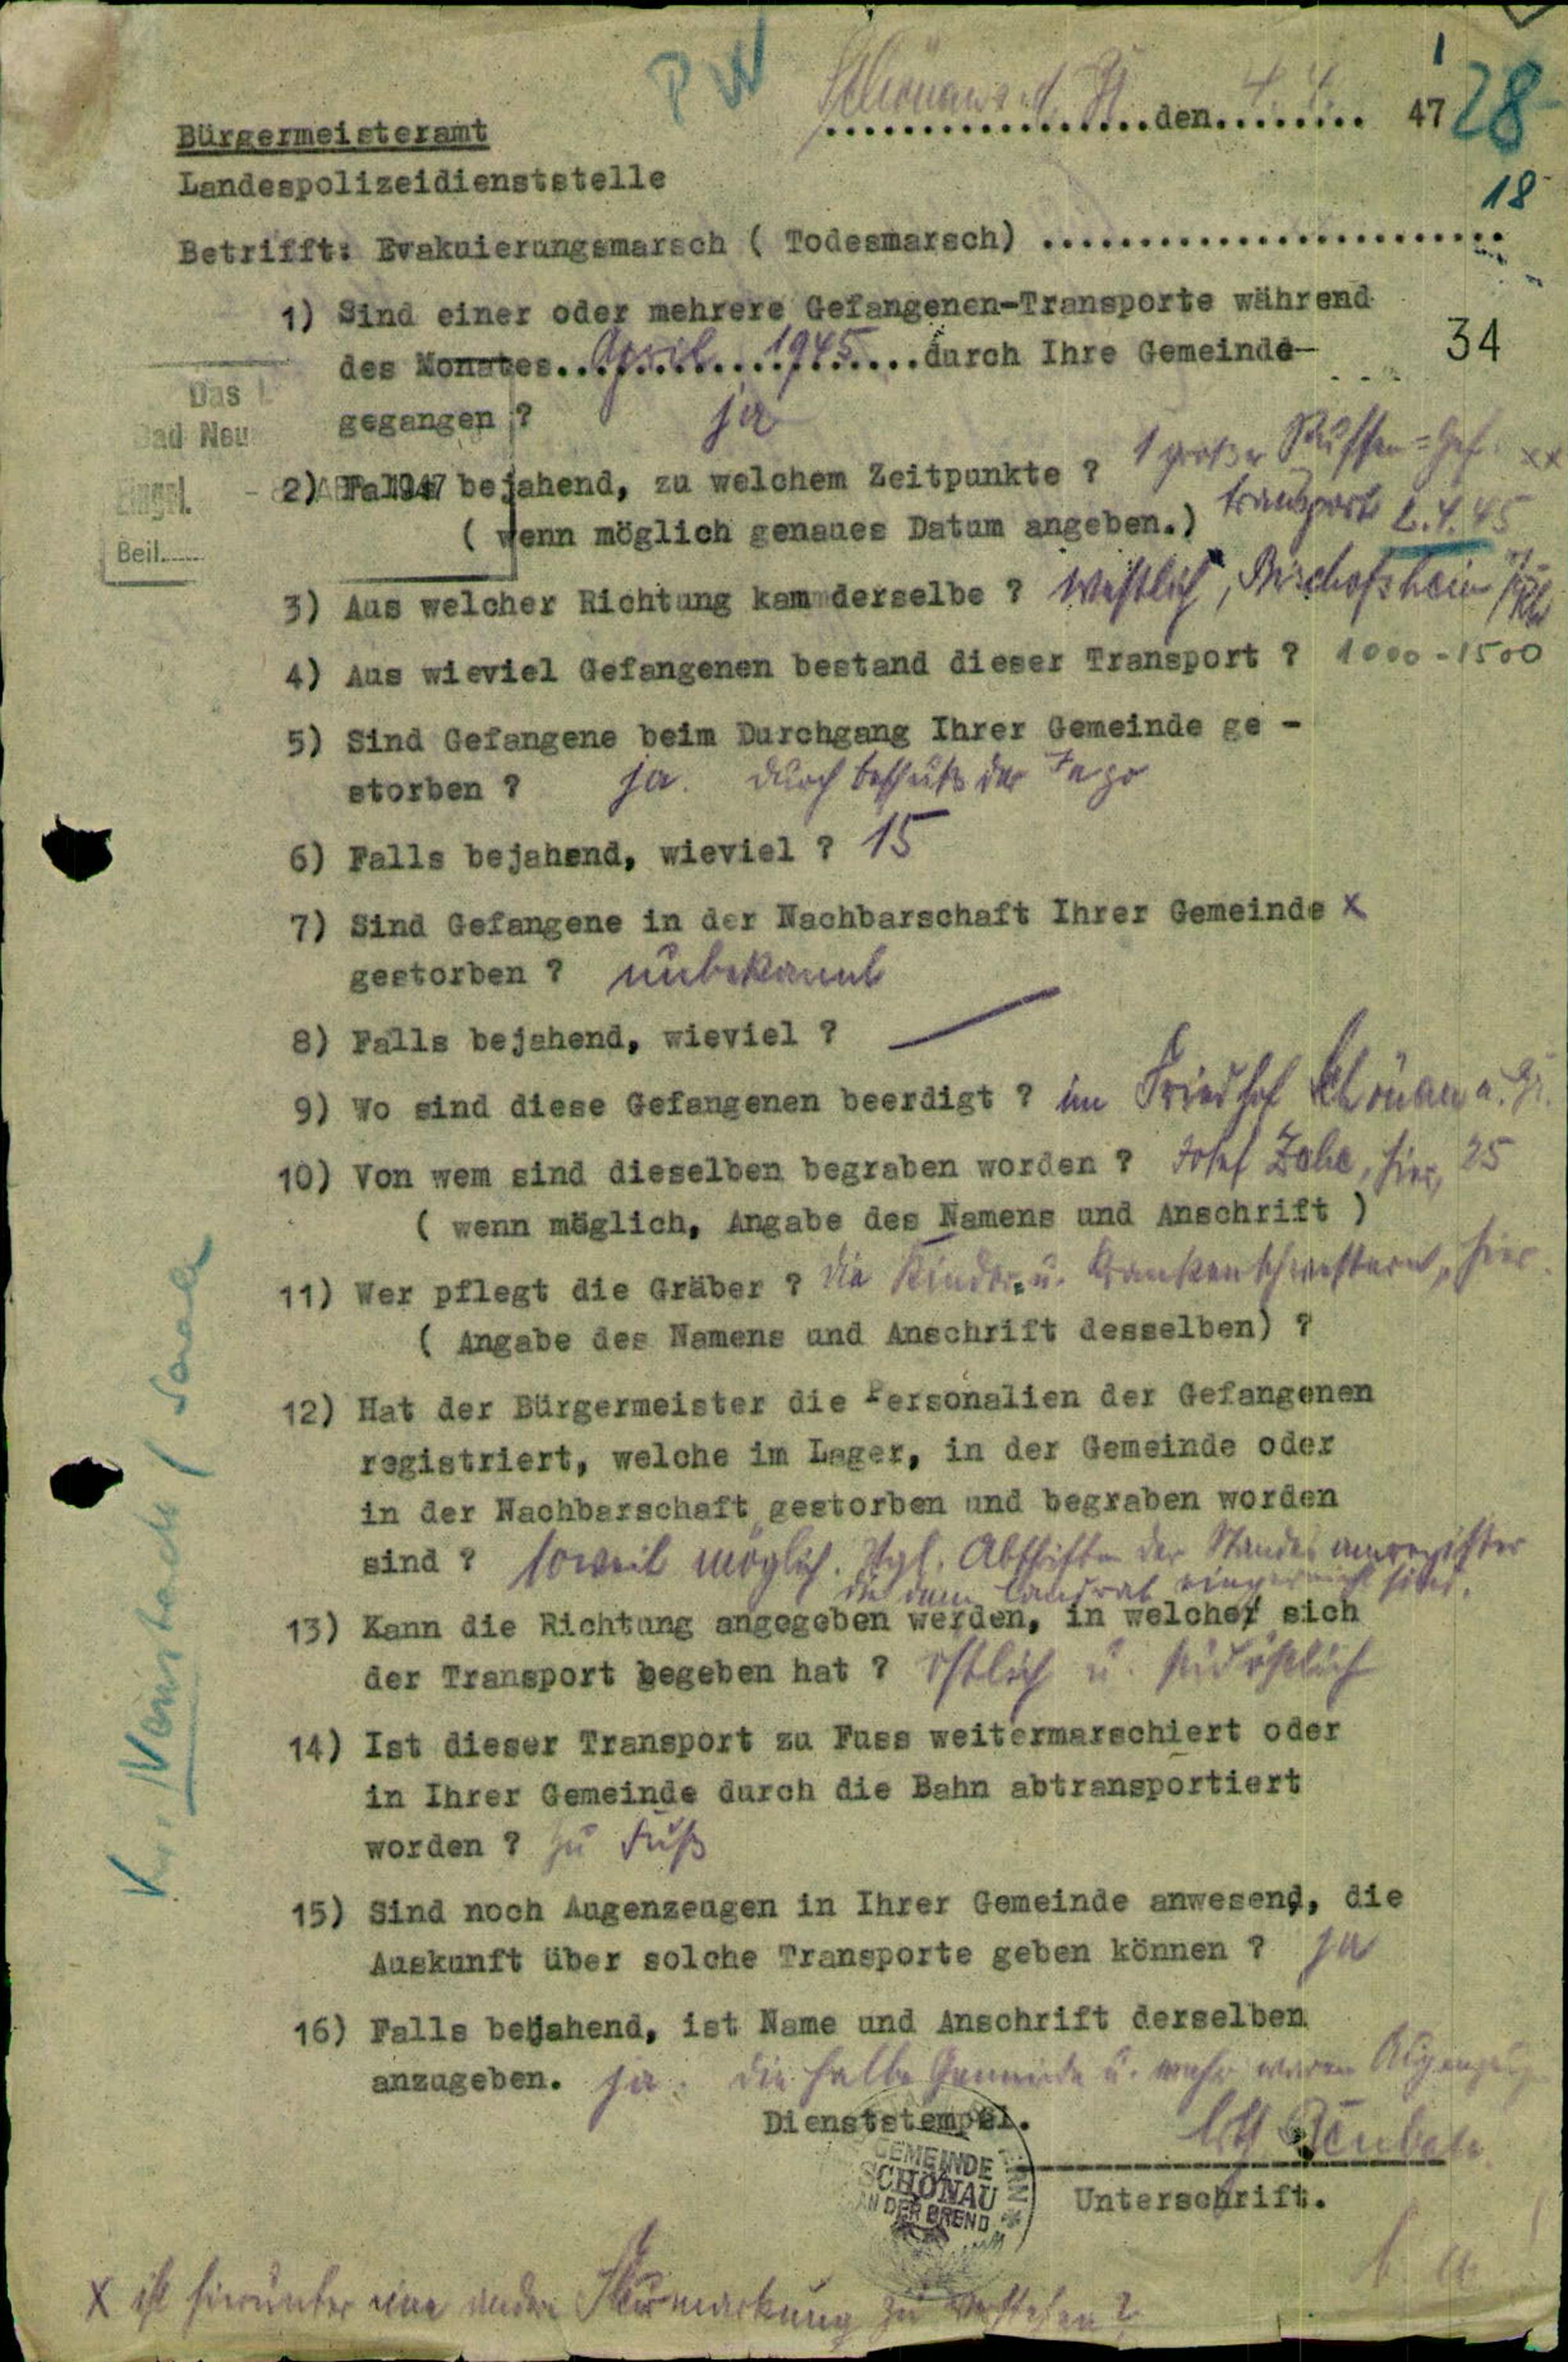 PW
1
Schönau a. d. Br. den 4. 4. 47
28
Bürgermeisteramt
Landespolizeidienststelle
18
Betrifft: Evakuierungsmarsch ( Todesmarsch) ........................
1) Sind einer oder mehrere Gefangenen-Transporte während
des Monates...April...1945....durch Ihre Gemeinde
34
gegangen ? ja
Das L
Bad Neu
Eingl. - 8. APR. 1947
Beil.......
2) Falls bejahend, zu welchem Zeitpunkte ? 1 großer Russen=Gef. xx
( wenn möglich genaues Datum angeben.) transport 2.4.45
3) Aus welcher Richtung kam derselbe ? westlich, Bischofsheim / Rh
4) Aus wieviel Gefangenen bestand dieser Transport ? 1000-1500
5) Sind Gefangene beim Durchgang Ihrer Gemeinde ge -
storben ? ja. durch Beschuß der
6) Falls bejahend, wieviel ? 15
7) Sind Gefangene in der Nachbarschaft Ihrer Gemeinde x
gestorben ? unbekannt
8) Falls bejahend, wieviel ? —
9) Wo sind diese Gefangenen beerdigt ? im Friedhof Schönau a. Br.
10) Von wem sind dieselben begraben worden ? Josef hier, 25
( wenn möglich, Angabe des Namens und Anschrift )
11) Wer pflegt die Gräber ? die Kinder- u. Krankenschwestern, hier.
( Angabe des Namens und Anschrift desselben) ?
12) Hat der Bürgermeister die Personalien der Gefangenen
registriert, welche im Lager, in der Gemeinde oder
in der Nachbarschaft gestorben und begraben worden
sind ? soweit möglich. Vgl. Abschriften der Standesamtsregister
die dem Landrat eingereicht sind.
13) Kann die Richtung angegeben werden, in welcher sich
der Transport begeben hat ? östlich u. südöstlich
14) Ist dieser Transport zu Fuss weitermarschiert oder
in Ihrer Gemeinde durch die Bahn abtransportiert
worden ? zu Fuß
15) Sind noch Augenzeugen in Ihrer Gemeinde anwesend, die
Auskunft über solche Transporte geben können ? ja
16) Falls bejahend, ist Name und Anschrift derselben
anzugeben. ja. die halbe Gemeinde u. mehr waren Augenzeugen
Dienststempel.
GEMEINDE
SCHÖNAU
AN DER BREND
Unterschrift.
x ist hierunter eine andere Flurmarkung zu verstehen?
Neustadt / Saale